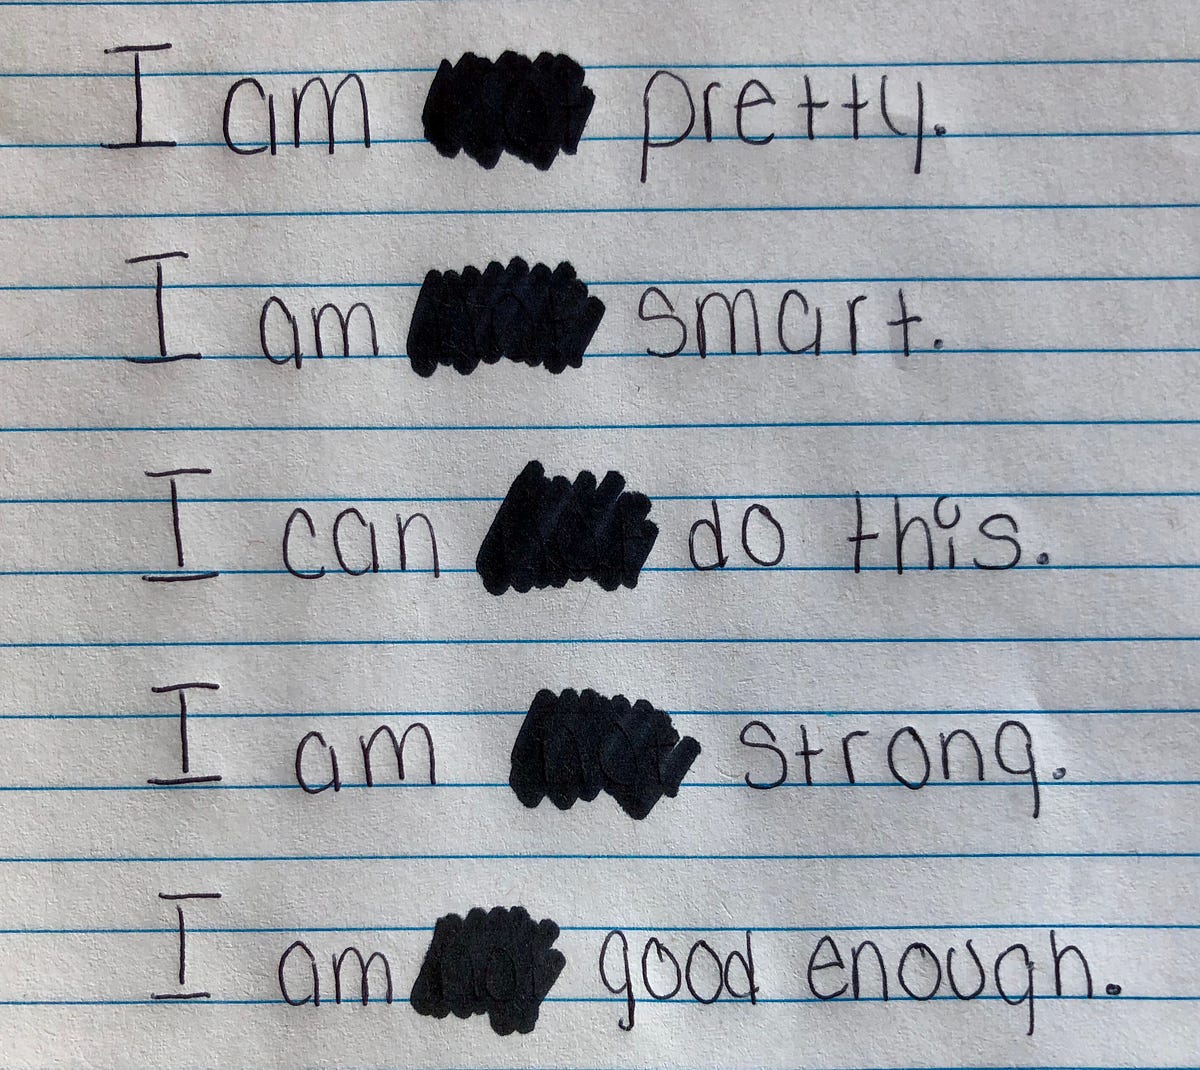 I am pretty.
I am smart.
I can do this.
I am strong.
I am good enough.